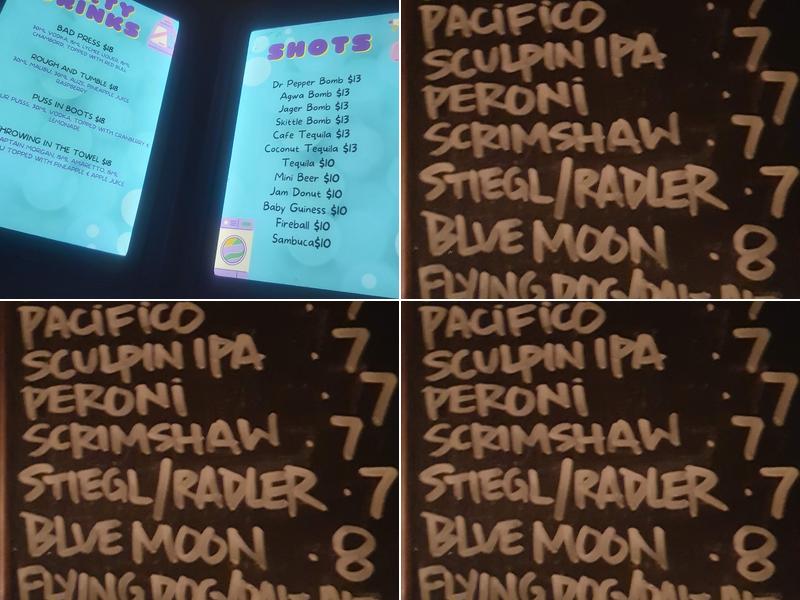 BAD PRESS $18
CHAMBORD, TOPPED WITH RED BULL
ROUGH AND TUMBLE $18
30ML MALIBU, 30ML ALIZE, PINEAPPLE JUICE
RASPBERRY
PUSS IN BOOTS $18
PUSS, 30ML VODKA, TOPPED WITH CRANBERRY &
LEMONADE
THROWING IN THE TOWEL $18
CAPTAIN MORGAN, 15ML AMARETTO, 15ML
TOPPED WITH PINEAPPLE & APPLE JUICE
SHOTS
Dr Pepper Bomb $13
Agwa Bomb $13
Jager Bomb $13
Skittle Bomb $13
Cafe Tequila $13
Coconut Tequila $13
Tequila $10
Mini Beer $10
Jam Donut $10
Baby Guiness $10
Fireball $10
Sambuca$10
PACIFICO
SCULPIN IPA . 7
PERONI 7
SCRIMSHAW . 7
STIEGL/RADLER . 7
BLUE MOON . 8
FLYING DOG/
PACIFICO
SCULPIN IPA . 7
PERONI 7
SCRIMSHAW . 7
STIEGL/RADLER . 7
BLUE MOON . 8
FLYING DOG/
PACIFICO
SCULPIN IPA . 7
PERONI 7
SCRIMSHAW . 7
STIEGL/RADLER . 7
BLUE MOON . 8
FLYING DOG/